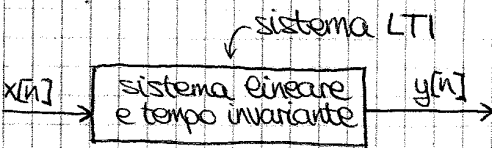 sistema LTI
x[n]
sistema lineare
e tempo invariante
y[n]